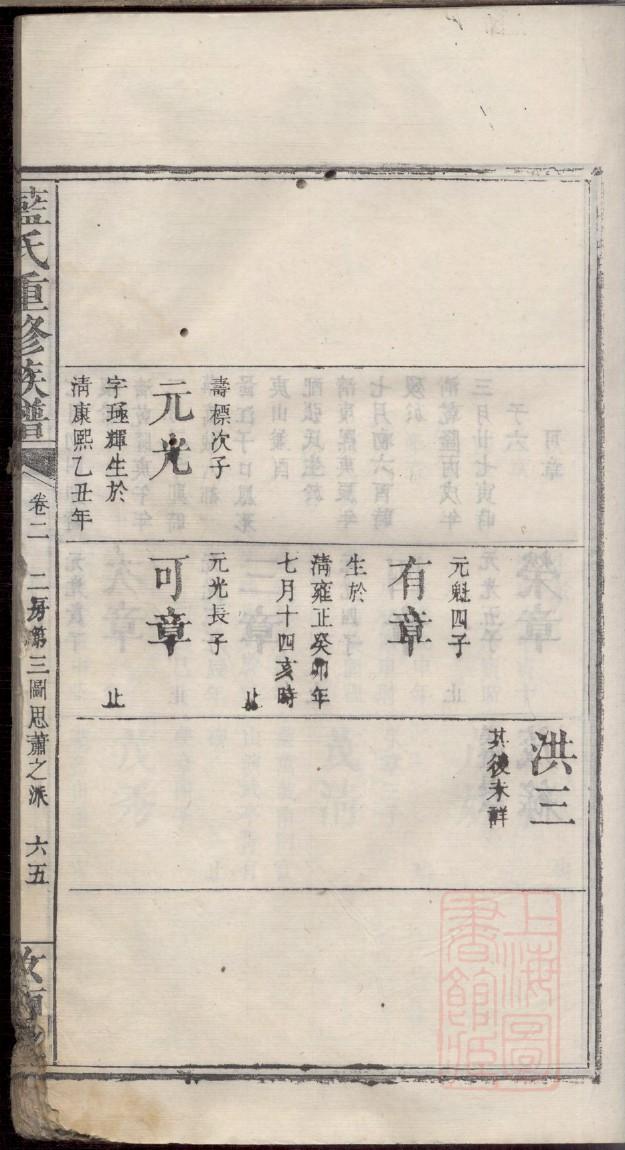 洪三
其後未詳
元魁四子
止
有章
生於
清雍正癸卯年
七月十四亥時
止
壽標次子
元光
字㻅輝生於
清康熙乙丑年
元光長子
可章
止
藍氏重修族譜
卷二
二房第三圖思蕭之派
六五
汝南
上海圖書館藏